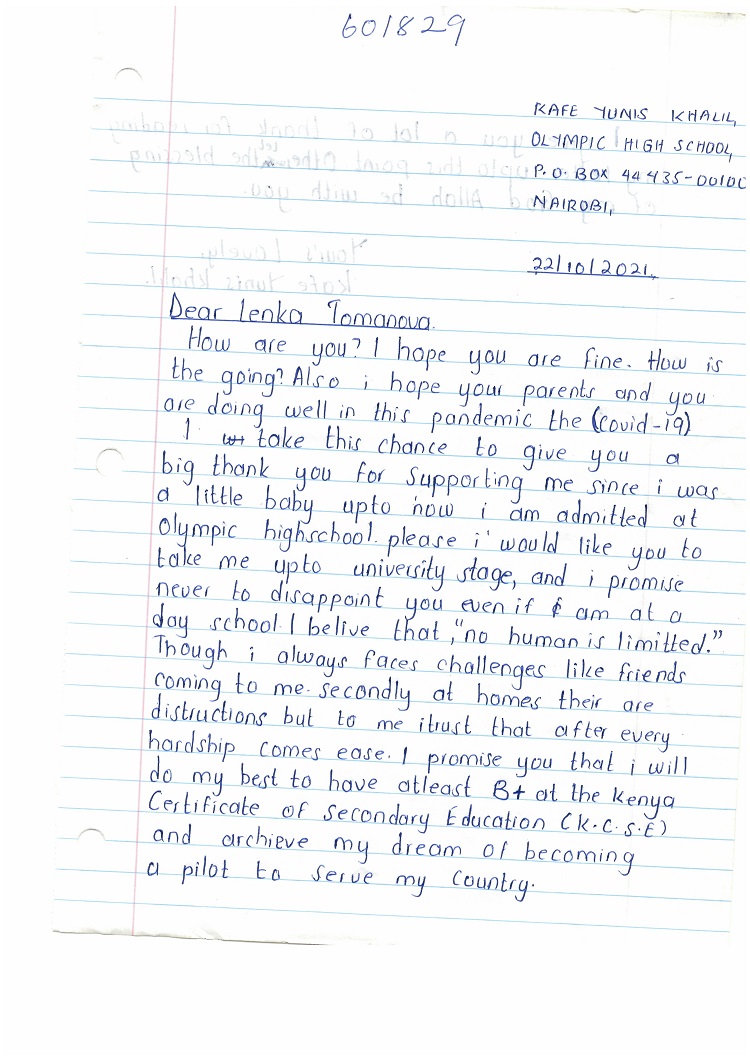 601829
KAFE YUNIS KHALIL,
OLYMPIC HIGH SCHOOL,
P.O. BOX 44435-00100
NAIROBI,
22/10/2021.
Dear Lenka Tomanova.
How are you? I hope you are fine. How is
the going? Also i hope your parents and you
are doing well in this pandemic the (covid-19)
I take this chance to give you a
big thank you for supporting me since i was
a little baby upto now i am admitted at
Olympic highschool. please i would like you to
take me upto university stage, and i promise
never to disappoint you even if I am at a
day school. I belive that, "no human is limitted."
Though i always faces challenges like friends
coming to me. secondly at homes their are
distructions but to me itrust that after every
hardship comes ease. I promise you that i will
do my best to have atleast B+ at the Kenya
Certificate of Secondary Education (K.C.S.E)
and archieve my dream of becoming
a pilot to serve my country.